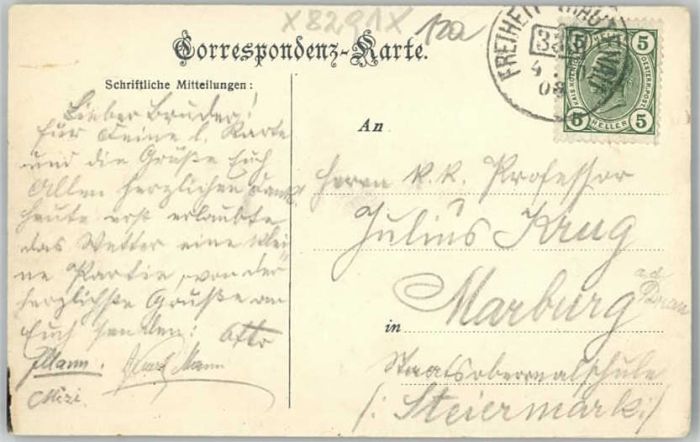 X8291X
12a
Correspondenz-Karte.
FREIHEIT
4
08
5 5
5 HELLER 5
Schriftliche Mitteilungen:
Lieber Bruder!
Für Deine l. Karte
und die Grüße Euch
Allen herzlichen Dank!
Heute erst erlaubte
das Wetter eine klei-
ne Partie, von der
herzlichste Grüße an
Euch senden: Otto
Mann. Mann
Mizi.
An
Herrn K. K. Professor
Julius Krug
Marburg a.d. Drau
in
Staatsoberrealschule
/: Steiermark :/